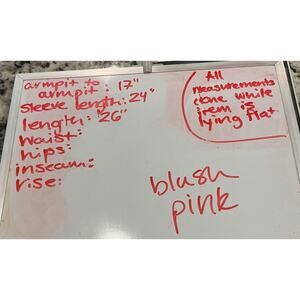 armpit to
armpit: 17"
sleeve length: 24"
length: 26"
waist:
hips:
inseam:
rise:
All
measurements
done while
item is
lying flat
blush
pink